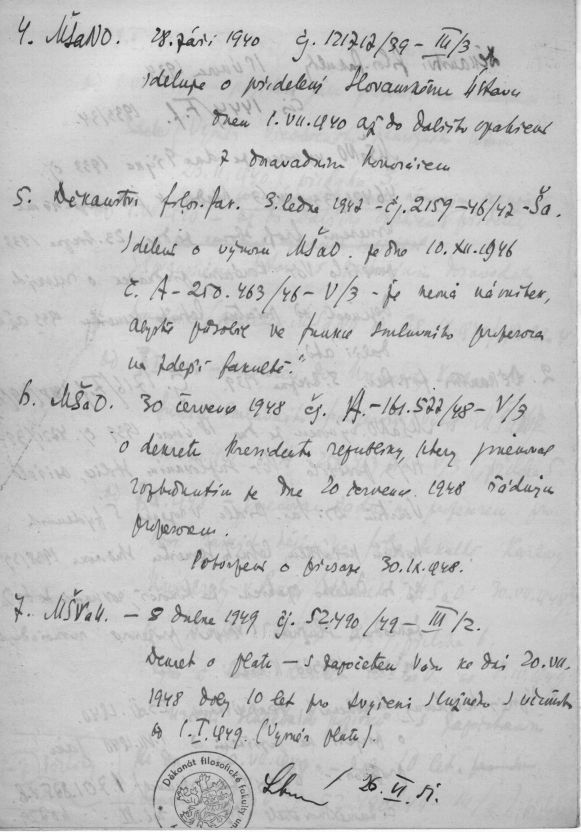 4. MŠaNO. 28. září 1940 čj. 121717/39 – III/3
sděluje o přidělení Slovanskému Ústavu
dnem 1. VII. 1940 až do dalšího opatření
s dosavadním honorářem
5. Děkanství filos. fak. 3. ledna 1947 – čj. 2159–46/47 – Ša.
Sdělení o výnosu MŠaO. ze dne 10. XII. 1946
č. A – 250.463/46 – V/3 – že nemá námitek,
abyste působil ve funkci smluvního profesora
na zdejší fakultě."
6. MŠaO. 30 července 1948 čj. A–161.522/48 – V/3
o dekretu Presidenta republiky, který jmenoval
rozhodnutím ze dne 20 července 1948 řádným
profesorem.
Potvrzení o přísaze 30. IX. 1948.
7. MŠVaU. – 8 dubna 1949 čj. 52.490/49 – III/2.
Dekret o platu – s započetím ke dni 20. VII.
1948 doby 10 let pro zvýšení služného s účinností
od 1. I. 1949. (Výměr platu).
26. VI. 51.
Děkanát filosofické fakulty